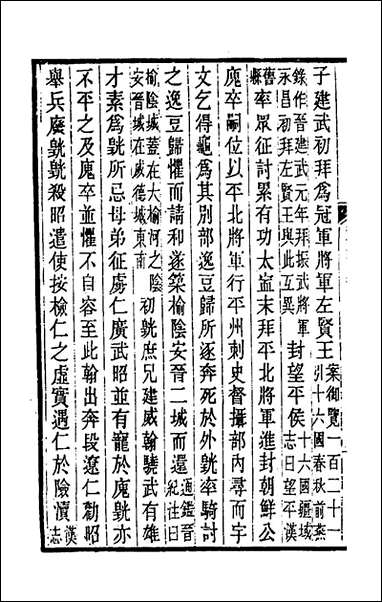 子建武初拜爲冠軍將軍左賢王案御覽一百二十一引十六國春秋前燕
錄作晉建武元年拜振武將軍永昌初拜左賢王與此互異封望平侯十六國疆域志曰望平漢
舊縣率眾征討累有功太寍末拜平北將軍進封朝鮮公
廆卒嗣位以平北將軍行平州刺史督攝部內尋而宇
文乞得龜爲其別部逸豆歸所逐奔死於外皝率騎討
之逸豆歸懼而請和遂築榆陰安晉二城而還通鑑晉紀注曰
榆陰城蓋在大榆河之陰安晉城在威德城東南初皝庶兄建威翰驍武有雄
才素爲皝所忌母弟征虜仁廣武昭並有寵於廆皝亦
不平之及廆卒並懼不自容至此翰出奔段遼仁勸昭
舉兵廢皝皝殺昭遣使按檢仁之虛實遇仁於險瀆漢志